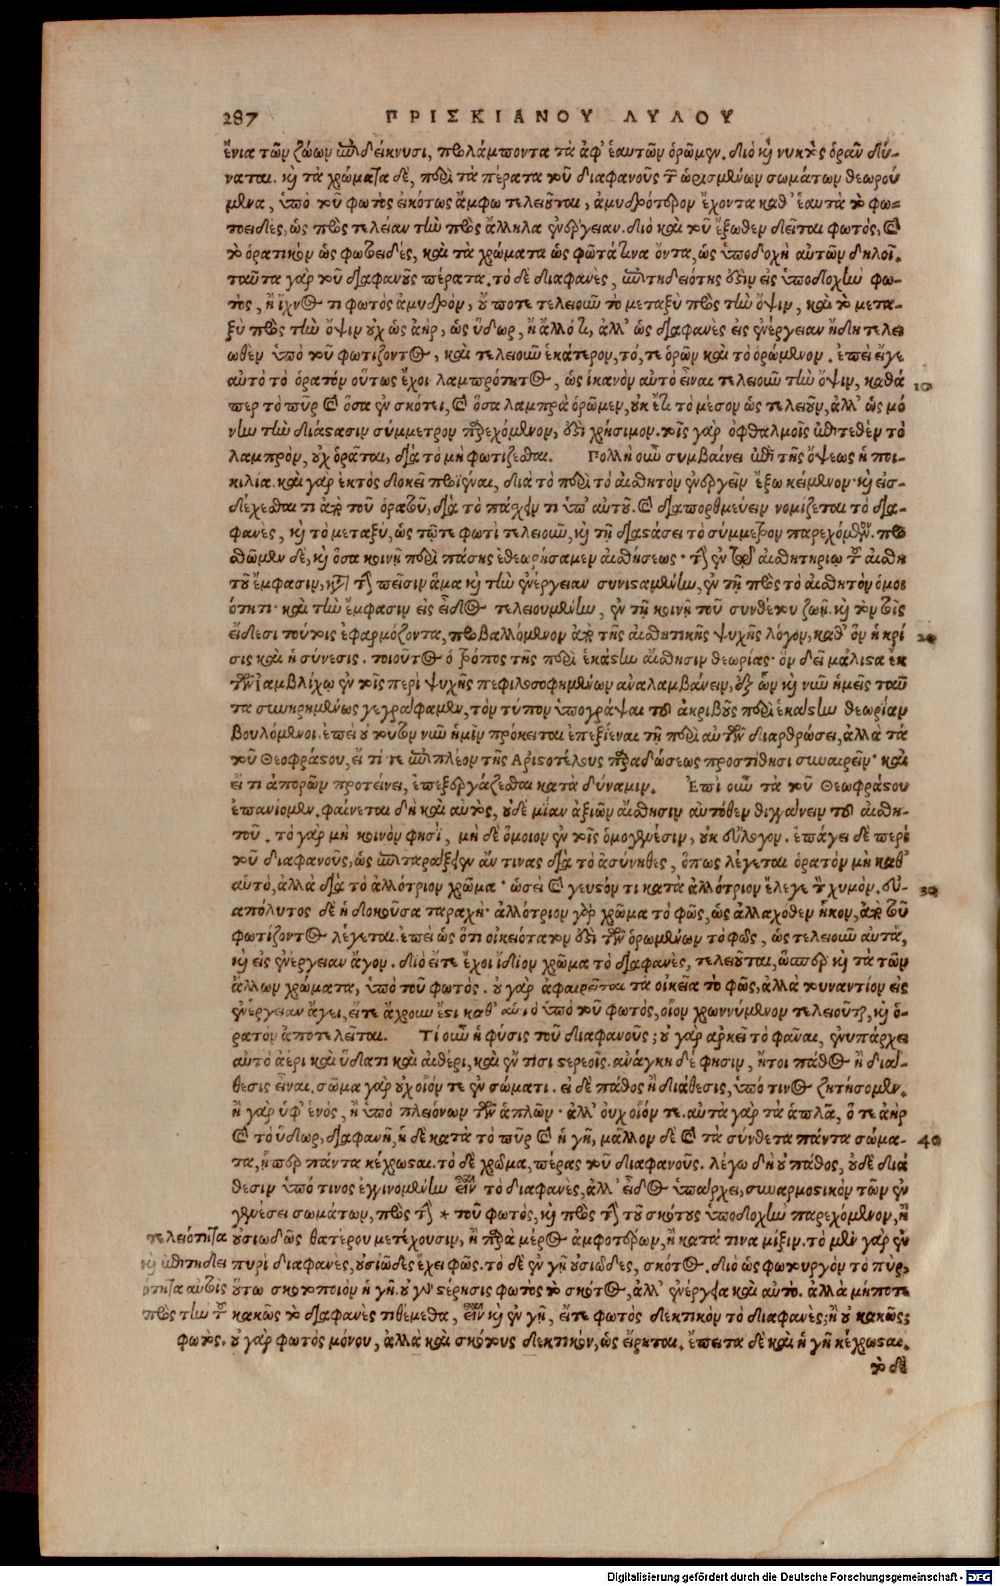 287 ΠΡΙΣΚΙΑΝΟΥ ΛΥΔΟΥ
ἔνια τῶν ζώων ἐπιδείκνυσι, προλάμποντα τὰ ἀφ' ἑαυτῶν ὁρώμεν. διὸ καὶ νυκτὸς ὁρᾶν δύ-
ναται. καὶ τὰ χρώματα δὲ, περὶ τὰ πέρατα τοῦ διαφανοῦς τῶν ὡρισμένων σωμάτων θεωρού
μενα, ὑπὸ τοῦ φωτὸς εἰκότως ἄμφω τελειοῦται, ἀμυδρότερον ἔχοντα καθ' ἑαυτὰ τὸ φω-
τοειδὲς, ὡς πρὸς τελείαν τὴν πρὸς ἄλληλα ἐνέργειαν. διὸ καὶ τοῦ ἔξωθεν δεῖται φωτὸς, καὶ
τὸ ὁρατικὸν ὡς φωτοειδὲς, καὶ τὰ χρώματα ὡς φῶτά τινα ὄντα, ὡς ὑποδοχὴ αὐτῶν δηλοῖ.
ταῦτα γὰρ τοῦ διαφανοῦς πέρατα. τὸ δὲ διαφανὲς, ἐπιτηδειότης οὖσιν εἰς ὑποδοχὴν φω-
τὸς, ἢ ἴχνος τι φωτὸς ἀμυδρὸν, οὔποτε τελειοῦν τὸ μεταξὺ πρὸς τὴν ὄψιν, καὶ τὸ μετα-
ξὺ πρὸς τὴν ὄψιν οὐχ ὡς ἀὴρ, ὡς ὕδωρ, ἢ ἄλλό τι, ἀλλ' ὡς διαφανὲς εἰς ἐνέργειαν ἤδη τελει
ωθὲν ὑπὸ τοῦ φωτίζοντος, καὶ τελειοῦν ἑκάτερον, τό, τε ὁρῶν καὶ τὸ ὁρώμενον. ἐπεὶ εἴγε
αὐτὸ τὸ ὁρατὸν οὕτως ἔχοι λαμπρότητος, ὡς ἱκανὸν αὐτὸ εἶναι τελειοῦν τὴν ὄψιν, καθά 10
περ τὸ πῦρ καὶ ὅσα ἐν σκότει, καὶ ὅσα λαμπρὰ ὁρῶμεν, οὐκ ἔτι τὸ μέσον ὡς τελειοῦν, ἀλλ' ὡς μό
νην τὴν διάστασιν σύμμετρον παρεχόμενον, ἐστὶ χρήσιμον. τοῖς γὰρ ὀφθαλμοῖς ἐπιτεθὲν τὸ
λαμπρὸν, οὐχ ὁρᾶται, διὰ τὸ μὴ φωτίζεσθαι. Πολλὴ οὖν συμβαίνει ἐπὶ τῆς ὄψεως ἡ ποι-
κιλία. καὶ γὰρ ἐκτὸς δοκεῖ προϊέναι, διὰ τὸ περὶ τὸ αἰσθητὸν ἐνεργεῖν ἔξω κείμενον· καὶ εἰσ-
δέχεσθαι τι ἀπὸ τοῦ ὁρατοῦ, διὰ τὸ πάσχειν τι ὑπ' αὐτοῦ. καὶ διαπορθμεύειν νομίζεται τὸ δια-
φανὲς, καὶ τὸ μεταξὺ, ὡς τῷ τε φωτὶ τελειοῦν, καὶ τῇ διαστάσει τὸ σύμμετρον παρεχόμενον. προσ
θῶμεν δὲ, καὶ ὅσα κοινῇ περὶ πάσης ἐθεωρήσαμεν αἰσθήσεως· τὴν ἐν τῷ αἰσθητηρίῳ τοῦ αἰσθη
τοῦ ἔμφασιν, κατὰ τὴν πεῖσιν ἅμα καὶ τὴν ἐνέργειαν συνισταμένην, ἐν τῇ πρὸς τὸ αἰσθητὸν ὁμοι
ότητι· καὶ τὴν ἔμφασιν εἰς εἶδος τελειουμένην, ἐν τῇ κοινῇ τοῦ συνθέτου ζωῇ. καὶ τὸν τοῖς
εἴδεσι τούτοις ἐφαρμόζοντα, προβαλλόμενον ἀπὸ τῆς αἰσθητικῆς ψυχῆς λόγον, καθ' ὃν ἡ κρί 20
σις καὶ ἡ σύνεσις. τοιοῦτος ὁ τρόπος τῆς περὶ ἑκάστην αἴσθησιν θεωρίας· ὃν δεῖ μάλιστα ἐκ
τῶν Ἰαμβλίχῳ ἐν τοῖς περὶ ψυχῆς πεφιλοσοφημένων ἀναλαμβάνειν, ἐξ ὧν καὶ νῦν ἡμεῖς ταῦ
τα συνῃρημένως γεγράφαμεν, τὸν τύπον ὑπογράψαι τῆς ἀκριβοῦς περὶ ἑκάστην θεωρίαν
βουλόμενοι. ἐπεὶ οὐ τοῦτο νῦν ἡμῖν πρόκειται ἐπεξιέναι τῇ περὶ αὐτῶν διαρθρώσει, ἀλλὰ τὰ
τοῦ Θεοφράστου, εἴ τί τε ἐπιπλέον τῆς Ἀριστοτέλους παραδώσεως προστίθησι συναιρεῖν· καὶ
εἴ τι ἀπορῶν προτείνει, ἐπεξεργάζεσθαι κατὰ δύναμιν. Ἐπὶ οὖν τὰ τοῦ Θεωφράστου
ἐπανίομεν. φαίνεται δὴ καὶ αὐτὸς, οὐδὲ μίαν ἀξιῶν αἴσθησιν αὐτόθεν θιγγάνειν τοῦ αἰσθη-
τοῦ. τὸ γὰρ μὴ κοινὸν φησὶ, μὴ δὲ ὅμοιον ἐν τοῖς ὁμογενέσιν, οὐκ εὔλογον. ἐπάγει δὲ περὶ
τοῦ διαφανοῦς, ὡς ἐπιταράξειεν ἄν τινας διὰ τὸ ἀσύνηθες, ὅπως λέγεται ὁρατὸν μὴ καθ'
αὑτὸ, ἀλλὰ διὰ τὸ ἀλλότριον χρῶμα· ὡσεὶ καὶ γευστόν τι κατὰ ἀλλότριον ἔλεγε τὸν χυμὸν. εὐ- 30
απόλυτος δὲ ἡ δοκοῦσα ταραχή· ἀλλότριον γὰρ χρῶμα τὸ φῶς, ὡς ἀλλαχόθεν ἧκον, ἀπὸ τοῦ
φωτίζοντος λέγεται. ἐπεὶ ὡς ὅτι οἰκειότατον ἐστὶ τῶν ὁρωμένων τὸ φῶς, ὡς τελειοῦν αὐτὰ,
καὶ εἰς ἐνέργειαν ἄγον. διὸ εἴτε ἔχοι ἴδιον χρῶμα τὸ διαφανὲς, τελειοῦται, ὥσπερ καὶ τὰ τῶν
ἄλλων χρώματα, ὑπὸ τοῦ φωτός. οὐ γὰρ ἀφαιρεῖται τὰ οἰκεῖα τὸ φῶς, ἀλλὰ τοὐναντίον εἰς
ἐνέργειαν ἄγει, εἴτε ἄχρουν ἐστὶ καθ' αὑτὸ ὑπὸ τοῦ φωτὸς, οἷον χρωννύμενον τελειοῦται, καὶ ὁ-
ρατὸν ἀποτελεῖται. Τί οὖν ἡ φύσις τοῦ διαφανοῦς; οὐ γὰρ ἀρκεῖ τὸ φᾶναι, ἐνυπάρχει
αὐτὸ ἀέρι καὶ ὕδατι καὶ αἰθέρι, καὶ ἔν τισι στερεοῖς. ἀνάγκη δέ φησιν, ἤτοι πάθος ἢ διά-
θεσις εἶναι. σῶμα γὰρ οὐχοῖόν τε ἐν σώματι. εἰ δὲ πάθος ἢ διάθεσις, ὑπό τινος ζητήσομεν.
ἢ γὰρ ὑφ' ἑνὸς, ἢ ὑπὸ πλειόνων τῶν ἁπλῶν· ἀλλ' οὐχοἷόν τε. αὐτὰ γὰρ τὰ ἁπλᾶ, ὅ τε ἀὴρ
καὶ τὸ ὕδωρ, διαφανῆ, ἡ δὲ κατὰ τὸ πῦρ καὶ ἡ γῆ, μᾶλλον δὲ καὶ τὰ σύνθετα πάντα σώμα- 40
τα, ᾗπερ πάντα κέχρωσται. τὸ δὲ χρῶμα, πέρας τοῦ διαφανοῦς. λέγω δὴ οὐ πάθος, οὐδὲ διά
θεσιν ὑπό τινος ἐγγινομένην εἶναι τὸ διαφανὲς, ἀλλ' εἶδος ὑπάρχει, συναρμοστικὸν τῶν ἐν
γενέσει σωμάτων, πρὸς τὴν * τοῦ φωτὸς, καὶ πρὸς τὴν τοῦ σκότους ὑποδοχὴν παρεχόμενον, ἢ
τελειότητα οὐσιωδῶς θατέρου μετέχουσιν, ἢ παρὰ μέρος ἀμφοτέρων, ἢ κατά τινα μίξιν. τὸ μὲν γὰρ ἐν
καὶ ἐπιτηδει πυρὶ διαφανὲς, οὐσιῶδες ἔχει φῶς. τὸ δὲ ἐν γῇ οὐσιῶδες, σκότος. διὸ ὡς φωτουργὸν τὸ πῦρ,
ότητα αὐτοῖς οὕτω σκοτοποιὸν ἡ γῆ. οὐ γὰρ στέρησις φωτὸς τὸ σκότος, ἀλλ' ἐνέργεια καὶ αὐτό. ἀλλὰ μήποτε
πρὸς τὴν τοῦ κακῶς τὸ διαφανὲς τιθέμεθα, εἶναι καὶ ἐν γῇ, εἴτε φωτὸς δεκτικὸν τὸ διαφανὲς; ἢ οὐ κακῶς;
φωτός. οὐ γὰρ φωτὸς μόνου, ἀλλὰ καὶ σκότους δεκτικὸν, ὡς εἴρηται. ἔπειτα δὲ καὶ ἡ γῆ κέχρωσται.
τὸ δὲ
Digitalisierung gefördert durch die Deutsche Forschungsgemeinschaft - DFG